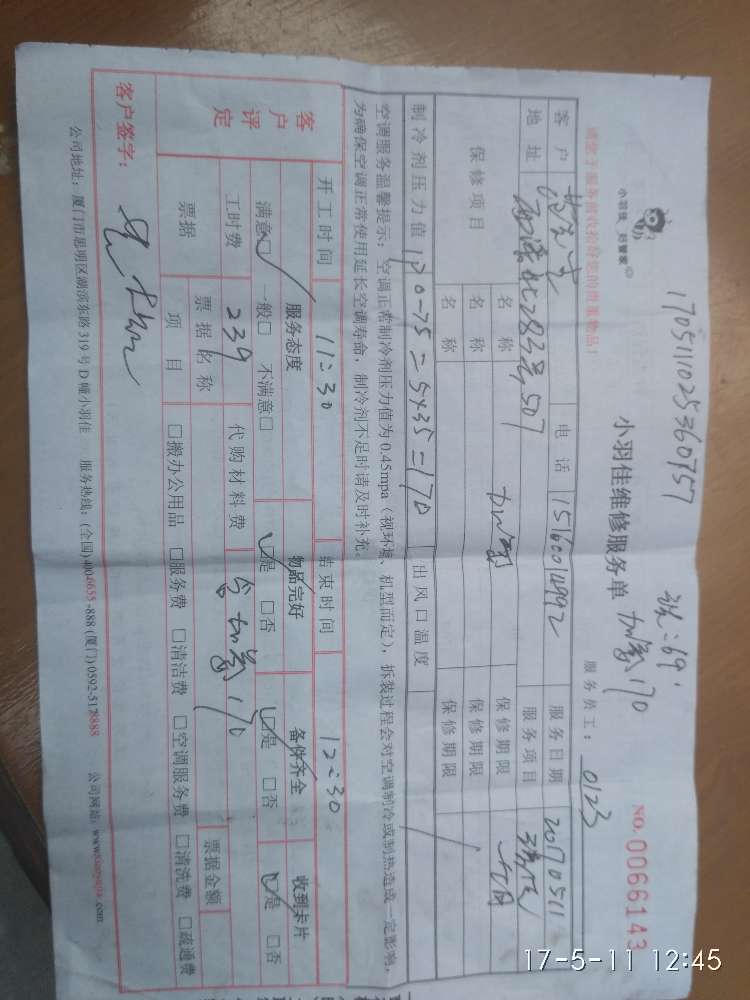 17051102536075​7
洗:69
加氟170
小羽佳 好管家
小羽佳维修服务单
服务员工: 0123
NO. 0066143
客户 电话 15160014992 服务日期 20170511
地址 北283号507 服务项目
保修项目 名称 加氟 保修期限
名称 保修期限
名称 保修期限
制冷剂压力值 170-75=5×35=170 出风口温度
空调服务温馨提示:空调正常制冷剂压力值为0.45mpa(视环境、机型而定),拆装过程会对空调制冷或制热造成一定影响,
为确保空调正常使用延长空调寿命,制冷剂不足时请及时补充。
开工时间 11:30 结束时间 12:30
客户评定 服务态度 物品完好 备件齐全 收到卡片
满意☑ 一般□ 不满意□ ☑是 □否 ☑是 □否 ☑是 □否
工时费 239 代购材料费 含加氟170
票据 票据名称 票据金额
项目 □搬办公用品 □服务费 □清洁费 □空调服务费 □清洗费 □疏通费
客户签字:
公司地址:厦门市思明区湖滨东路319号D幢小羽佳 服务热线:(全国)4004655-888(厦门)0592-5178888 公司网站:www.xiaoyujia.com
17-5-11 12:45